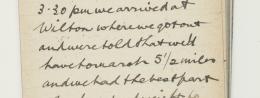 3.30 pm we arrived at
Wilton where we got out
and were told that we'd
have to march 5 1/2 miles
and we had the best part